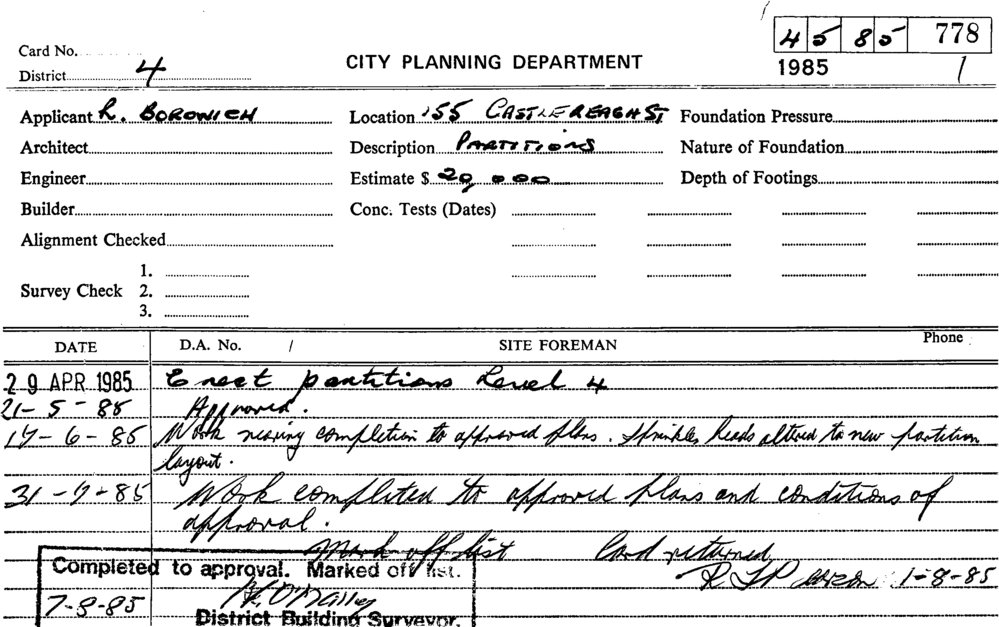 45 85 778
Card No.
CITY PLANNING DEPARTMENT
1985 1
District 4
Applicant L. BOROWICH Location 155 CASTLEREAGH ST Foundation Pressure
Architect Description PARTITIONS Nature of Foundation
Engineer Estimate $ 20,000 Depth of Footings
Builder Conc. Tests (Dates)
Alignment Checked
1.
Survey Check 2.
3.
DATE D.A. No. / SITE FOREMAN Phone
29 APR 1985 Erect partitions Level 4
21-5-85 Approved.
17-6-85 Work nearing completion to approved plans. Sprinkler heads altered to new partition
layout.
31-7-85 Work completed to approved plans and conditions of
approval.
Mark off list Card returned
Completed to approval. Marked off list.
1-8-85
7-8-85
District Building Surveyor.